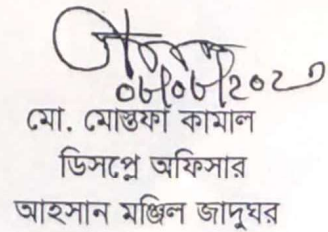 ০৮/০৮/২০২৩
মো. মোস্তফা কামাল
ডিসপ্লে অফিসার
আহসান মঞ্জিল জাদুঘর